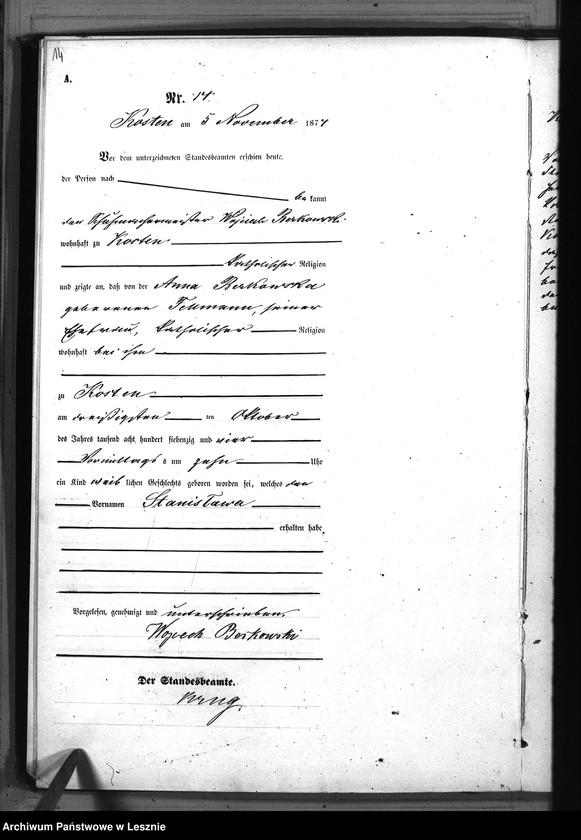 14
A.
Nr. 14.
Kosten am 5 November 1874
Vor dem unterzeichneten Standesbeamten erschien heute,
der Person nach
be kannt
den Schuhmachermeister Wojciech
wohnhaft zu Kosten
katholischer Religion
und zeigte an, daß von der Anna
geborenen seiner
Ehefrau, katholischer Religion
wohnhaft bei ihm
zu Kosten
am dreißigsten ten Oktober
des Jahres tausend acht hundert siebenzig und vier
Vormittags um zehn Uhr
ein Kind weib lichen Geschlechts geboren worden sei, welches den
Vornamen Stanislawa
erhalten habe
Vorgelesen, genehmigt und unterschrieben
Der Standesbeamte.
Archiwum Państwowe w Lesznie